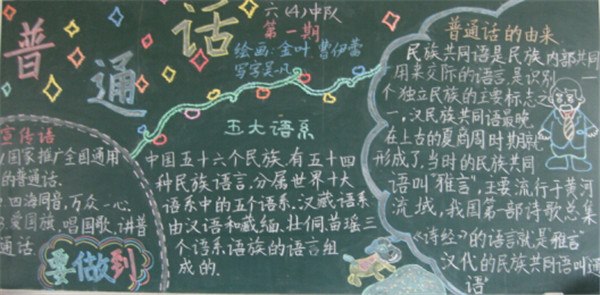 普通话
六(4)中队
第一期
绘画:金叶 曹伊蕾
写字吴凡
宣传话
1.国家推广全国通用
的普通话.
2.四海同音,万众一心
3.爱国旗,唱国歌,讲普
通话
要做到
五大语系
中国五十六个民族.有五十四
种民族语言,分属世界十大
语系中的五个语系.汉藏语系
由汉语和藏缅.壮侗苗瑶三
个语系语族的语言组
成的.
普通话的由来
民族共同语是民族内部共同
用来交际的语言,是识别一
个独立民族的主要标志之
一.汉民族共同语最晚
在上古的夏商周时期就
形成了,当时的民族共同
语叫"雅言",主要流行于黄河
流域,我国第一部诗歌总集
《诗经》的语言就是"雅言"
汉代的民族共同语叫通
语"